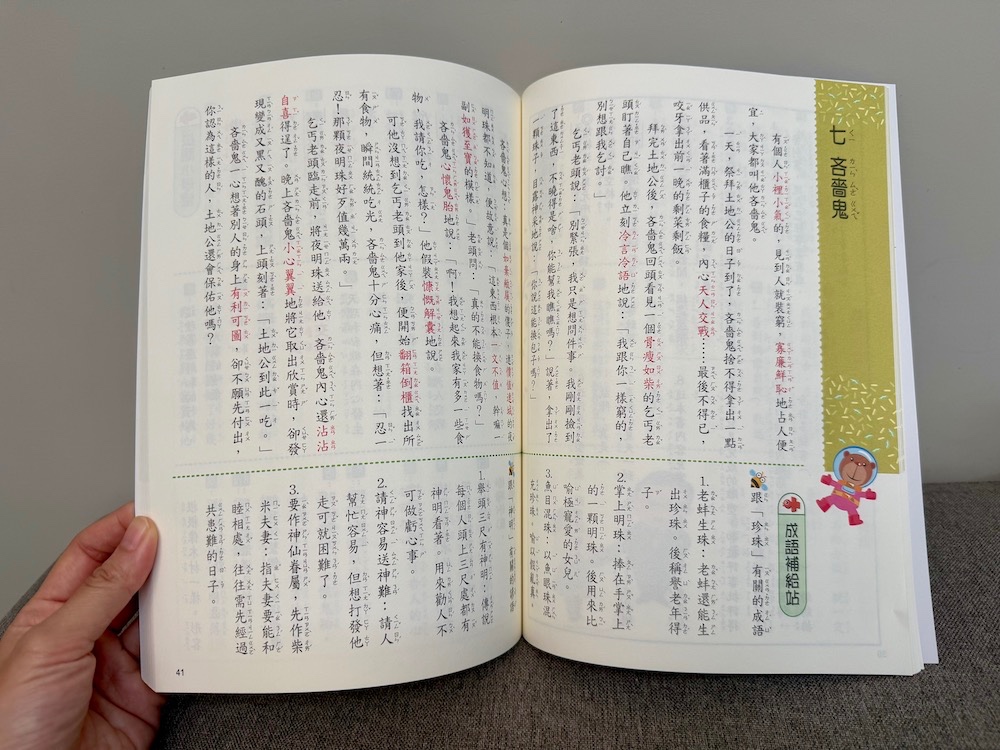 七 吝嗇鬼
有個人小裡小氣的，見到人就裝窮，寡廉鮮恥地占人便
宜，大家都叫他吝嗇鬼。
一天，祭拜土地公的日子到了，吝嗇鬼捨不得拿出一點
供品，看著滿櫃子的食糧，內心天人交戰……最後不得已，
咬牙拿出前一晚的剩菜剩飯。
拜完土地公後，吝嗇鬼回頭看見一個骨瘦如柴的乞丐老
頭盯著自己瞧。他立刻冷言冷語地說：「我跟你一樣窮的，
別想跟我乞討。」
乞丐老頭說：「別緊張，我只是想問件事。我剛剛撿到
了這東西，不曉得是啥，你能幫我瞧瞧嗎？」說著，拿出了
一顆珠子，目露神采地說：「你說這能換包子嗎？」
成語補給站
跟「珍珠」有關的成語
1.老蚌生珠：老蚌還能生
出珍珠。後稱譽老年得
子。
2.掌上明珠：捧在手掌上
的一顆明珠。後用來比
喻極寵愛的女兒。
3.魚目混珠：以魚眼珠混
充珍珠，喻以假亂真。
吝嗇鬼心想，真是個
明珠都不知道，便故意說：「這東西根本一文不值，幹嘛一
副如獲至寶的模樣。」老頭問：「真的不能換食物嗎？」
吝嗇鬼心懷鬼胎地說：「啊！我想起來我家有多一些食
物，我請你吃，怎樣？」他假裝慷慨解囊地說。
可他沒想到乞丐老頭到他家後，便開始翻箱倒櫃找出所
有食物，瞬間統統吃光，吝嗇鬼十分心痛，但想著：「忍一
忍！那顆夜明珠好歹值幾萬兩。」
乞丐老頭臨走前，將夜明珠送給他，吝嗇鬼內心還沾沾
自喜得逞了。晚上吝嗇鬼小心翼翼地將它取出欣賞時，卻發
現變成又黑又醜的石頭，上頭刻著：「土地公到此一吃。」
吝嗇鬼一心想著別人的身上有利可圖，卻不願先付出，
你認為這樣的人，土地公還會保佑他嗎？
跟「神明」有關的諺語
1.舉頭三尺有神明：傳說
每個人頭上三尺處都有
神明看著。用來勸人不
可做虧心事。
2.請神容易送神難：請人
幫忙容易，但想打發他
走可就困難了。
3.要作神仙眷屬，先作柴
米夫妻：指夫妻要能和
睦相處，往往需先經過
共患難的日子。
41